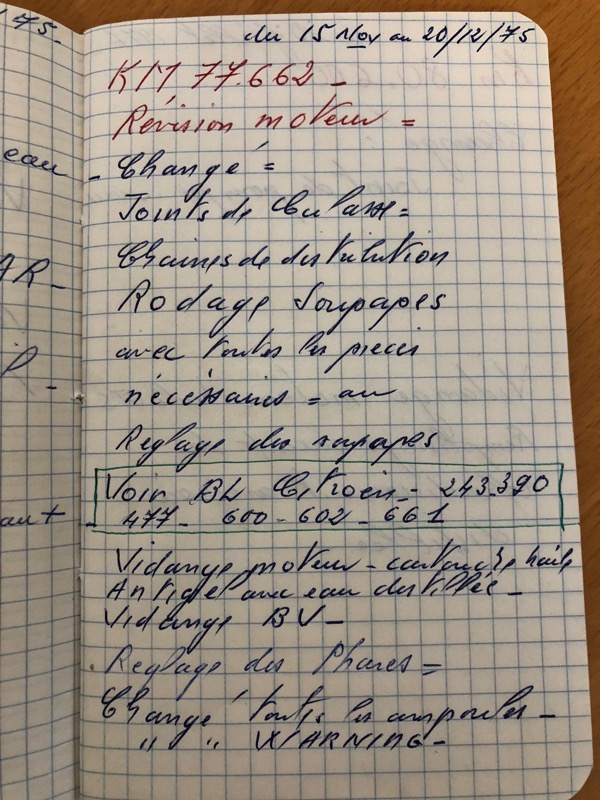 175-
du 15 Nov au 20/12/75
KM 77.662 -
Révision moteur =
eau
- Changé =
Joints de Culasse =
Chaines de distribution
AR -
Rodage Soupapes
avec toutes les pièces
nécéssaires = au
Reglage des soupapes
Voir BL Citroën - 243.390
477 - 600 - 602 - 661
Vidange moteur - cartouche huile
Antigel avec eau distillée -
Vidange BV -
Reglage des Phares =
Changé toutes les ampoules -
" " WARNING -